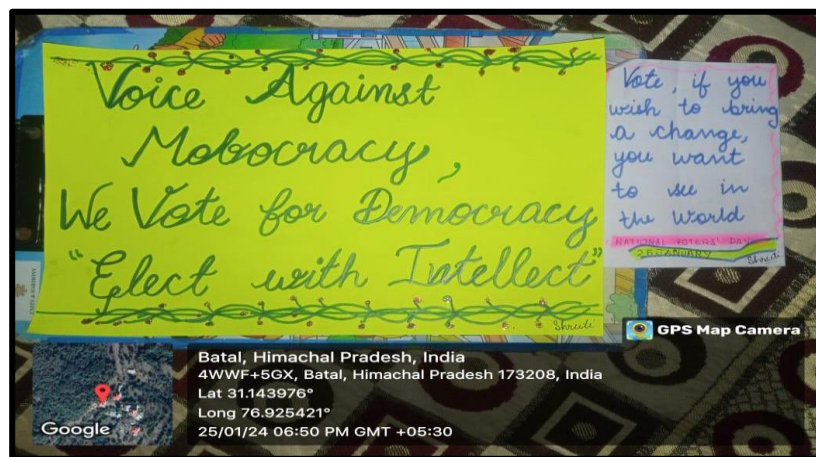 Voice Against
Mobocracy,
We Vote for Democracy
"Elect with Intellect"
Shruti
Vote, if you
wish to bring
a change,
you want
to see in
the World
NATIONAL VOTERS' DAY
25 JANUARY
Shruti
GPS Map Camera
Batal, Himachal Pradesh, India
4WWF+5GX, Batal, Himachal Pradesh 173208, India
Lat 31.143976°
Long 76.925421°
25/01/24 06:50 PM GMT +05:30
Google